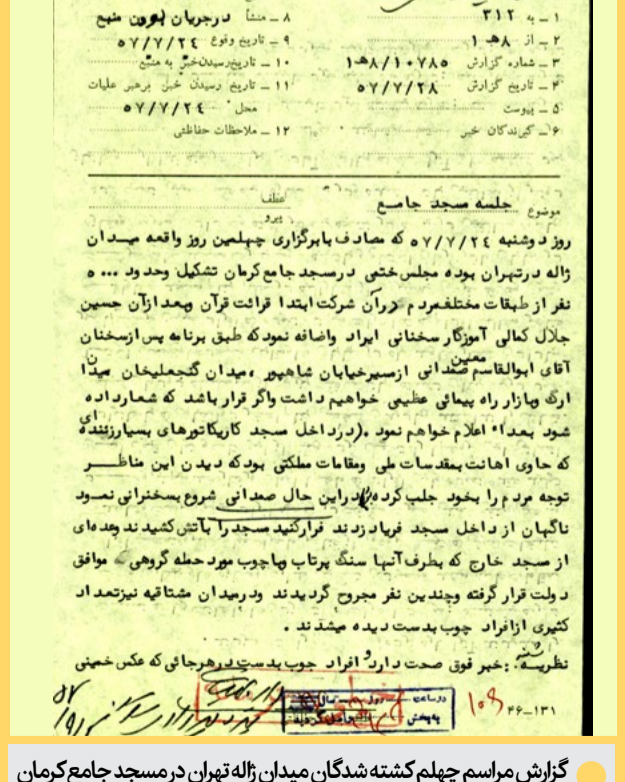 ۱ – به ۳۱۲
۲ – از ۸هـ۱
۳ – شماره گزارش ۱۰۷۸۵ / ۸هـ۱
۴ – تاریخ گزارش ۵۷/۷/۲۸
۵ – پیوست
۶ – گیرندگان خبر
۸ – منشأ درجریان (برون منبع
۹ – تاریخ وقوع ۵۷/۷/۲٤
۱۰ – تاریخ رسیدن خبر به منبع
۱۱ – تاریخ رسیدن خبر برهبر عملیات
محل ۵۷/۷/۲٤
۱۲ – ملاحظات حفاظتی
موضوع جلسه مسجد جامع
عطف
پیرو
روز دوشنبه ۵۷/۷/۲٤ که مصادف بابرگزاری چهلمین روز واقعه میدان
ژاله درتهران بوده مجلس ختمی درمسجد جامع کرمان تشکیل وحدود ۵۰۰۰
نفر از طبقات مختلف مردم درآن شرکت ابتدا قرائت قرآن وبعد ازآن حسین
جلال کمالی آموزگار سخنانی ایراد واضافه نمود که طبق برنامه پس ازسخنان
آقای ابوالقاسم معین صمدانی ازمسیرخیابان شاهپور ، میدان گنجعلیخان میدان
ارگ وبازار راه پیمائی عظیمی خواهیم داشت واگر قرار باشد که شعارداده
شود بعدا" اعلام خواهم نمود .(درداخل مسجد کاریکاتورهای بسیارزننده ای
که حاوی اهانت بمقدسات ملی ومقامات مملکتی بود که دیدن این مناظر
توجه مردم را بخود جلب کرده بود دراین حال صمدانی شروع بسخنرانی نمود
ناگهان از داخل مسجد فریاد زدند فرارکنید مسجد را بآتش کشیدند وعده ای
از مسجد خارج که بطرف آنها سنگ پرتاب وباچوب مورد حمله گروهی موافق
دولت قرار گرفته وچندین نفر مجروح گردیدند ودرمیدان مشتاقیه نیزتعداد
کثیری ازافراد چوب بدست دیده میشدند .
نظریه شنبه : خبر فوق صحت دارد و افراد چوب بدست درهرجائی که عکس خمینی
۴۶–۱۳۱
گزارش مراسم چهلم کشته شدگان میدان ژاله تهران در مسجد جامع کرمان